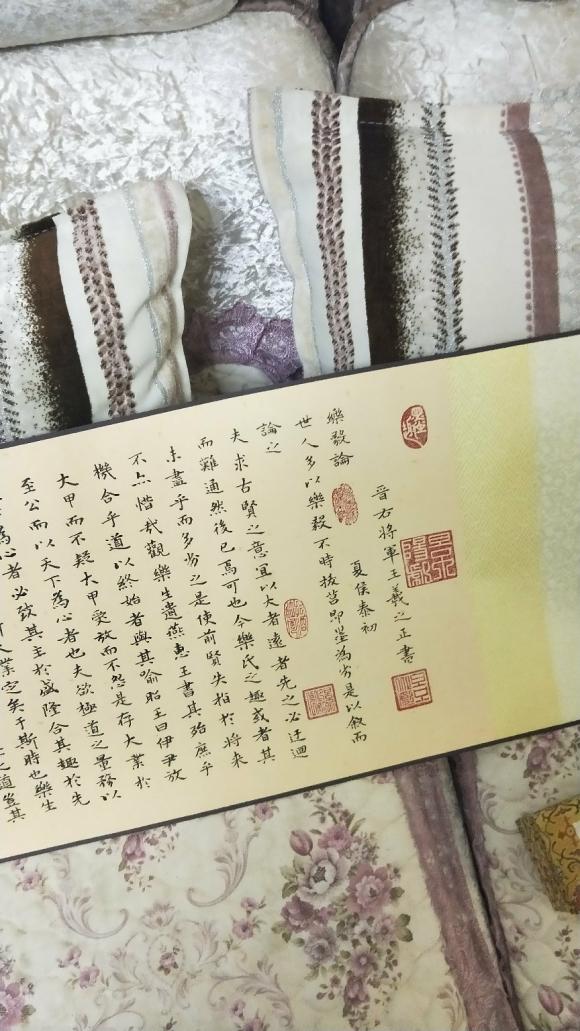 晉右將軍王羲之正書
樂毅論 夏侯泰初
世人多以樂毅不時拔莒即墨為劣是以敘而
論之
夫求古賢之意宜以大者遠者先之必迂迴
而難通然後已焉可也今樂氏之趣或者其
未盡乎而多劣之是使前賢失指於將來
不亦惜哉觀樂生遺燕惠王書其殆庶乎
機合乎道以終始者與其喻昭王曰伊尹放
大甲而不疑大甲受放而不怨是存大業於
至公而以天下為心者也夫欲極道之量務以
為心者必致其主於盛隆合其趣於先
大業定矣于斯時也樂生
之道豈其